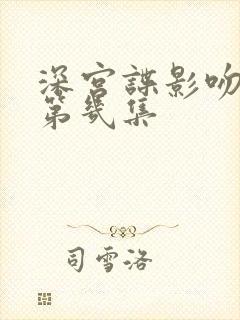 深宫諜影吻
第几集
司雪洛